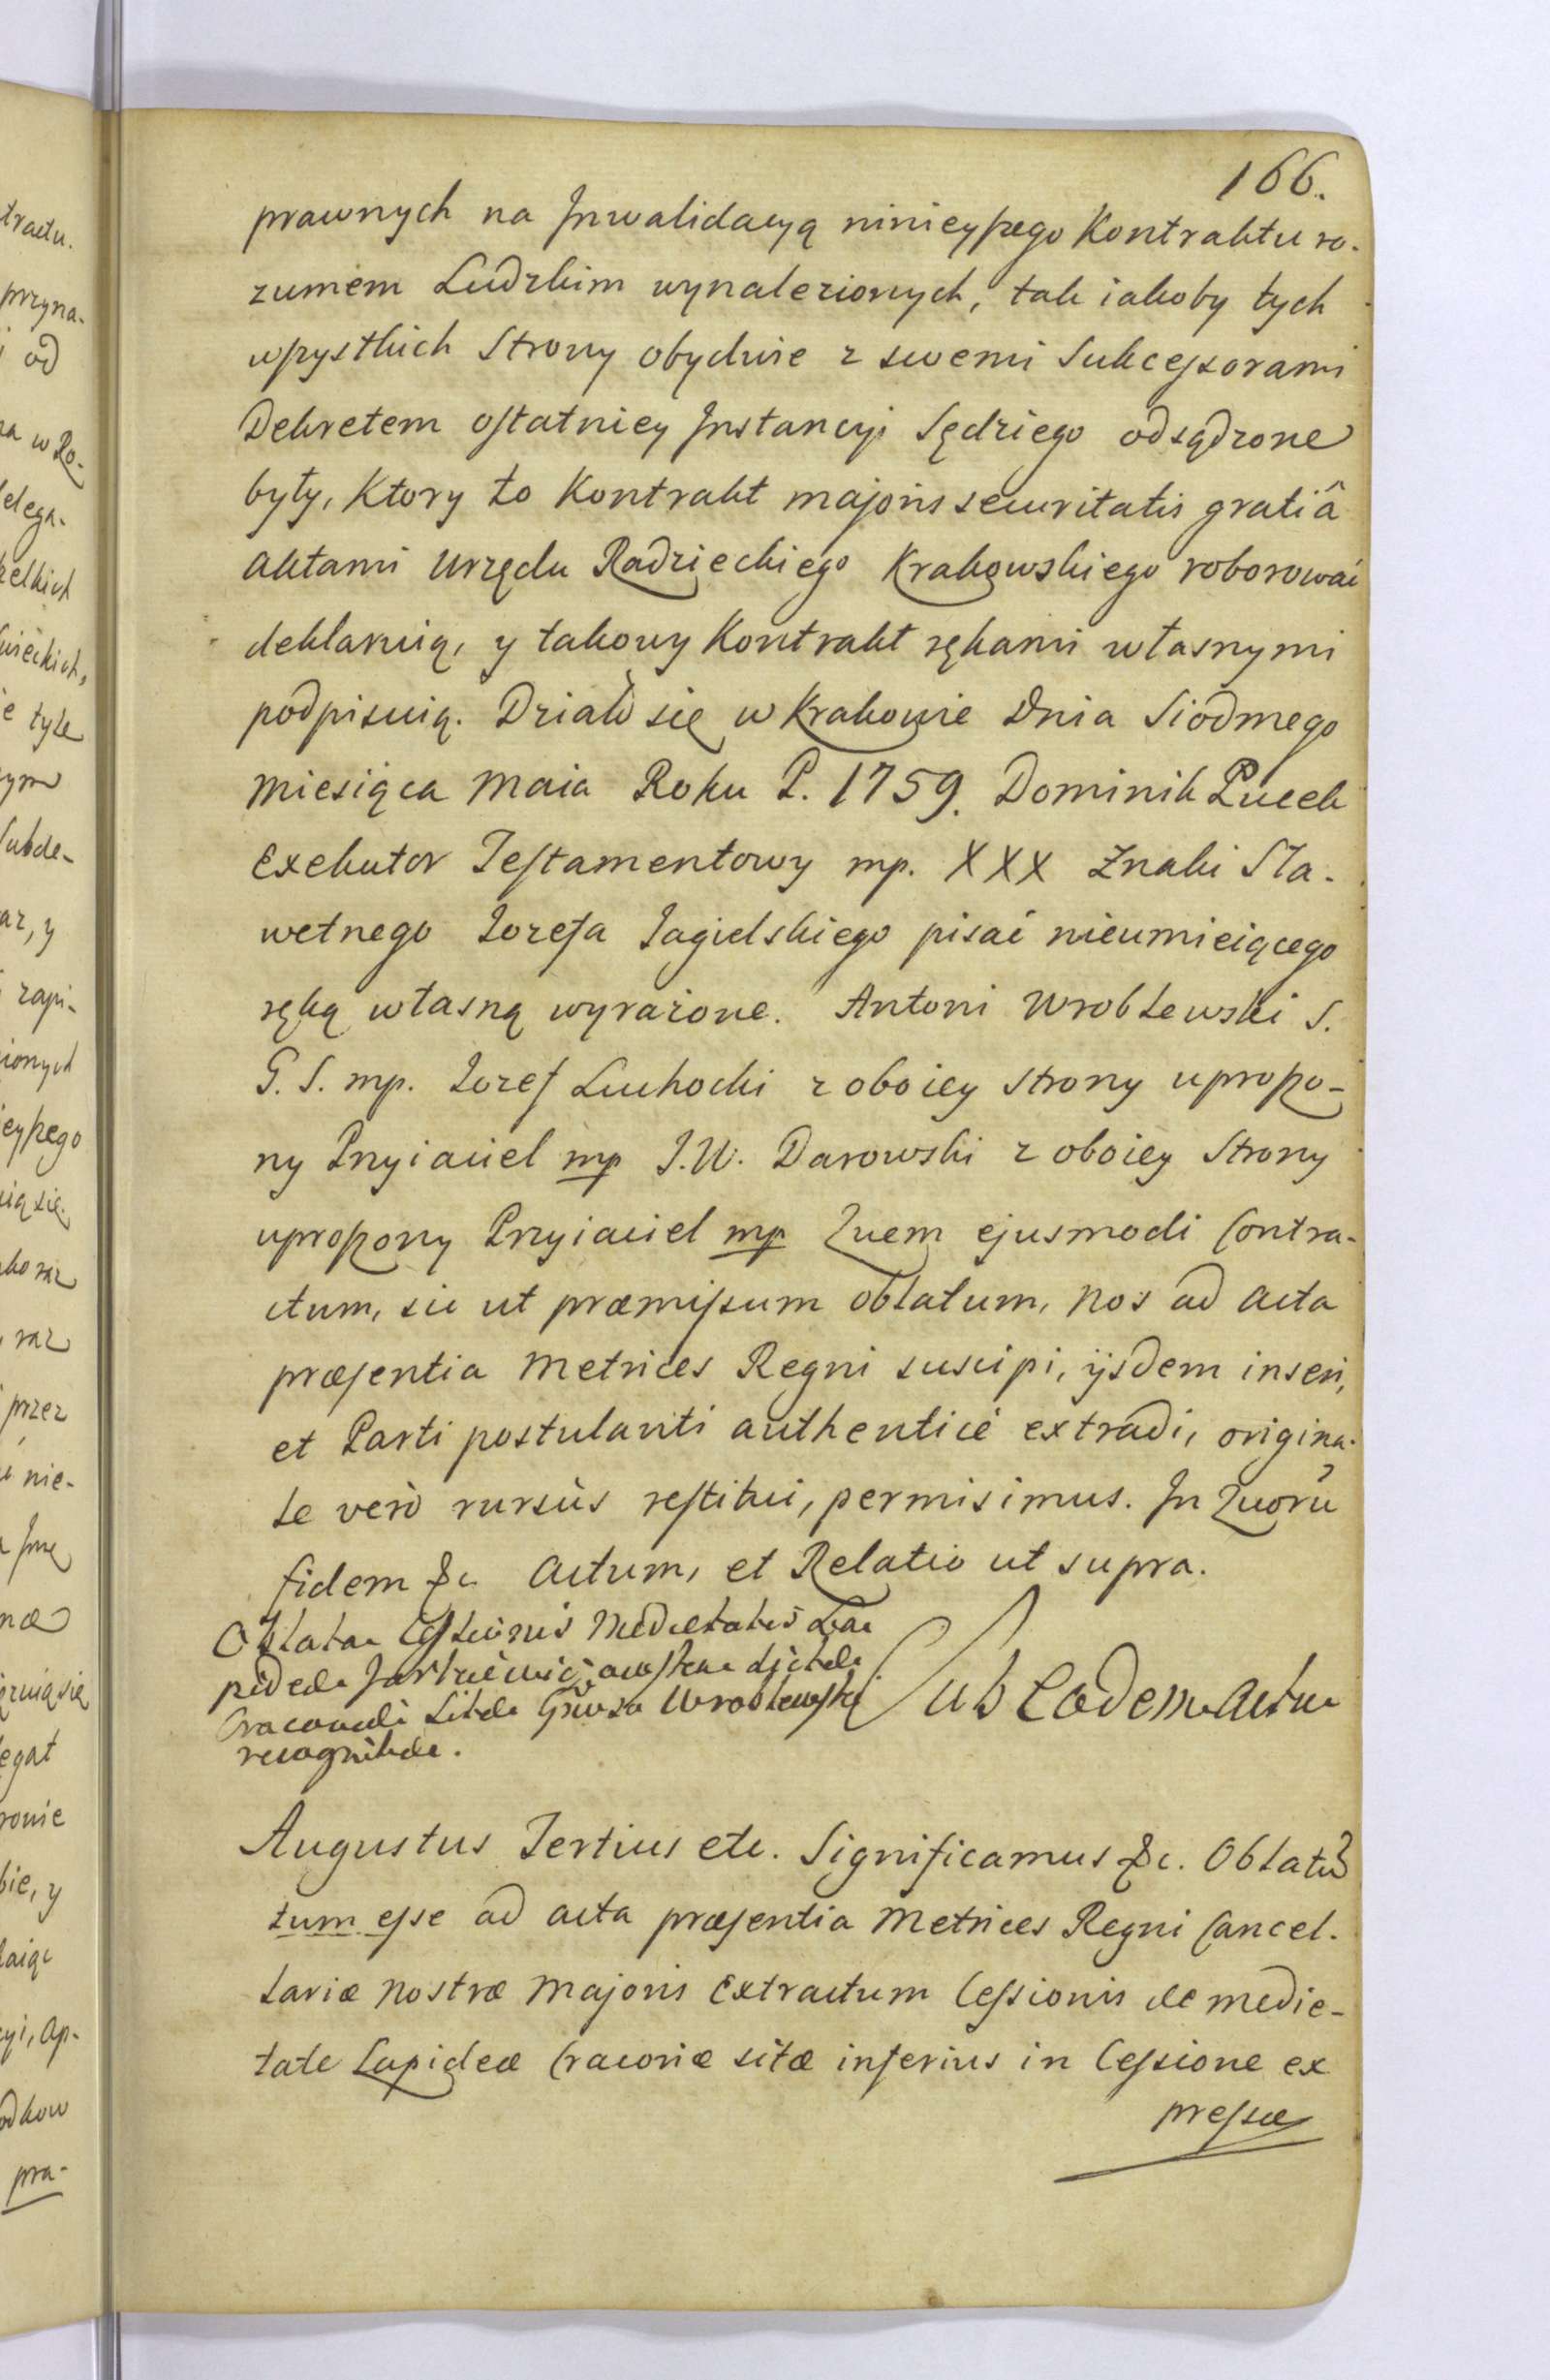 166.
prawnych na Inwalidacyą ninieyszego Kontraktu ro-
zumem Ludzkim wynalezionych, tak iakoby tych
wszystkich Strony obydwie z swemi Sukcessorami
Dekretem ostatniey Instancyi Sędziego odsądzone
były, Ktory to Kontrakt majoris securitatis gratiâ
Aktami Urzędu Radzieckiego Krakowskiego roborować
deklaruią, y takowy Kontrakt rękami własnymi
podpisuią. Działo się w Krakowie Dnia Siodmego
Miesiąca Maia Roku P. 1759. Dominik Pucek
Exekutor Testamentowy mp. XXX Znaki Sła-
wetnego Iozefa Jagielskiego pisać nieumieiącego
ręką własną wyrażone. Antoni Wroblewski S.
G. S. mp. Iozef Luchocki z oboiey Strony uproszo-
ny Przyiaciel mp J.W. Darowski z oboiey Strony
uproszony Przyiaciel mp Quem ejusmodi Contra-
ctum, sic ut præmissum oblatum, Nos ad Acta
præsentia Metrices Regni suscipi, ijsdem inseri,
et Parti postulanti authenticè extradi, origina-
le verò rursùs restitui, permisimus. In Quorũ
fidem &c. Actum, et Relatio ut supra.
Oblata Cessionis Medietatis La
pideæ
Cracoviæ Sitæ Wroblewski
recognitæ.
Sub Eodem Actu
Augustus Tertius etc. Significamus &c. Oblatũ
tum esse ad acta præsentia Metrices Regni Cancel-
lariæ Nostræ Majoris Extractum Cessionis de medie-
tate Lapideæ Cracoviæ sitæ inferius in Cessione ex
pressæ
tractu.
przyna-
od
w Ro-
tyle
zapi-
raz
przez
nie-
egat
bie, y
pra-